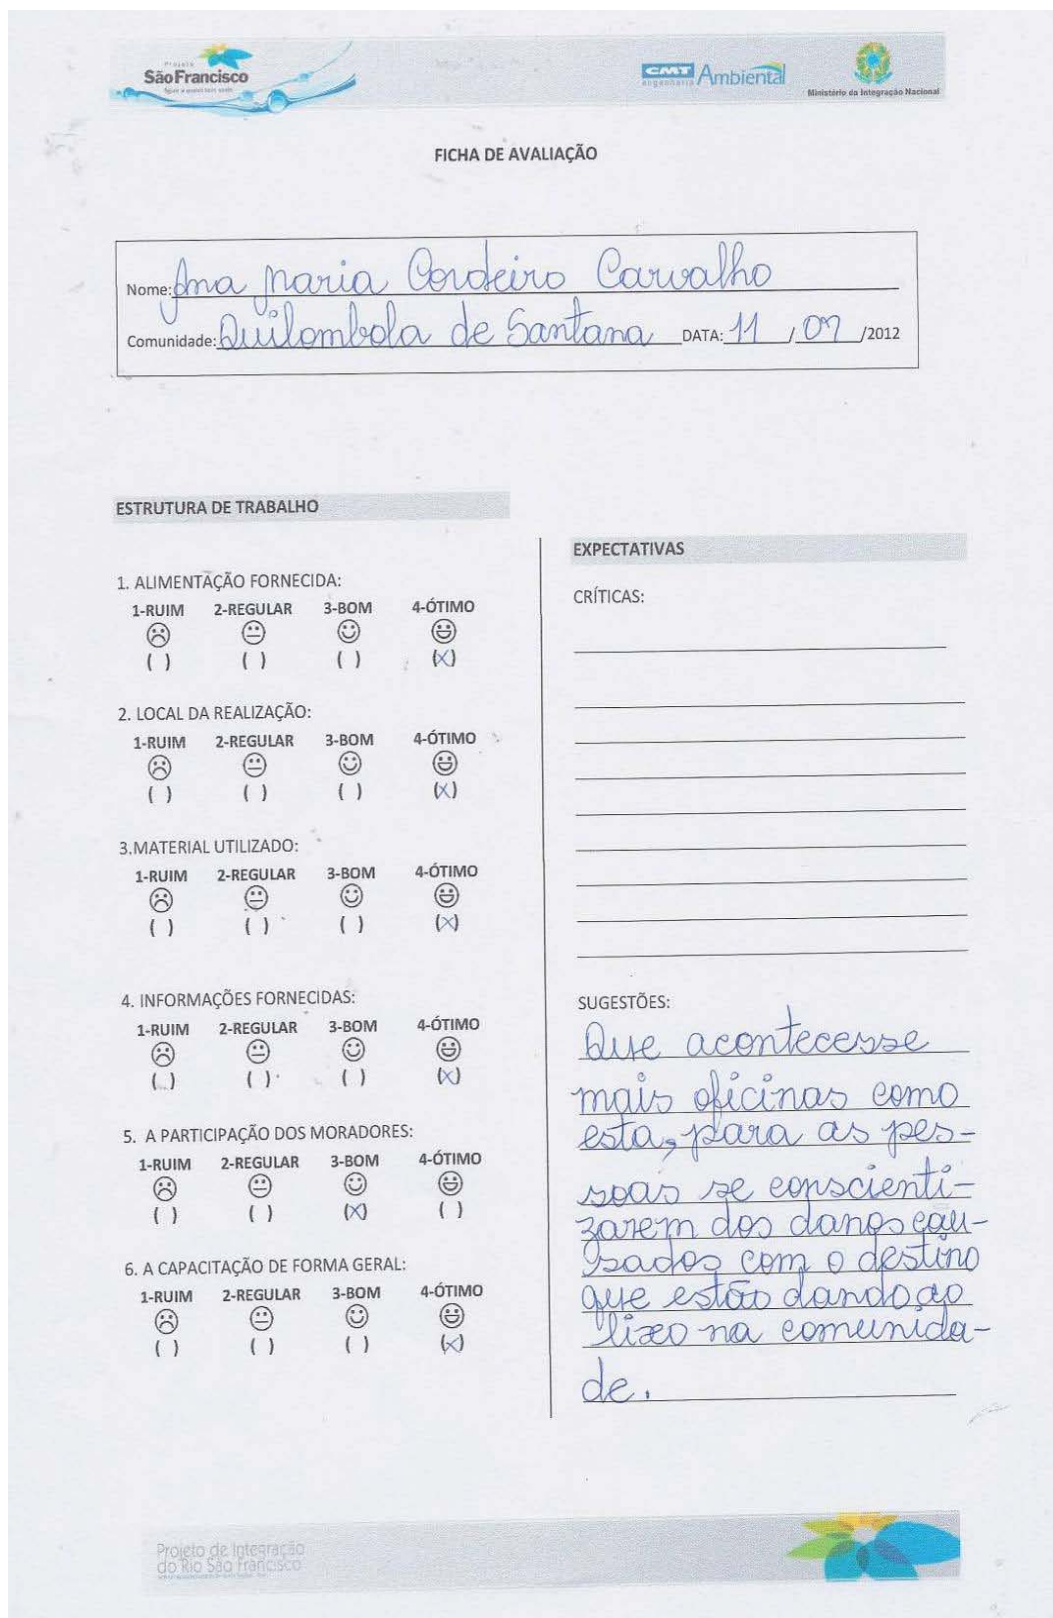 Projeto
São Francisco
CMT Ambiental
engenharia
Ministério da Integração Nacional
FICHA DE AVALIAÇÃO
Nome: Ana Maria Cordeiro Carvalho
Comunidade: Quilombola de Santana DATA: 11 / 07 /2012
ESTRUTURA DE TRABALHO
1. ALIMENTAÇÃO FORNECIDA:
1-RUIM 2-REGULAR 3-BOM 4-ÓTIMO
( ) ( ) ( ) (X)
2. LOCAL DA REALIZAÇÃO:
1-RUIM 2-REGULAR 3-BOM 4-ÓTIMO
( ) ( ) ( ) (X)
3.MATERIAL UTILIZADO:
1-RUIM 2-REGULAR 3-BOM 4-ÓTIMO
( ) ( ) ( ) (X)
4. INFORMAÇÕES FORNECIDAS:
1-RUIM 2-REGULAR 3-BOM 4-ÓTIMO
( ) ( ) ( ) (X)
5. A PARTICIPAÇÃO DOS MORADORES:
1-RUIM 2-REGULAR 3-BOM 4-ÓTIMO
( ) ( ) (X) ( )
6. A CAPACITAÇÃO DE FORMA GERAL:
1-RUIM 2-REGULAR 3-BOM 4-ÓTIMO
( ) ( ) ( ) (X)
EXPECTATIVAS
CRÍTICAS:
SUGESTÕES:
Que acontecesse
mais oficinas como
esta, para as pes-
soas se conscienti-
zarem dos danos cau-
sados com o destino
que estão dando ao
lixo na comunida-
de.
Projeto de Integração
do Rio São Francisco